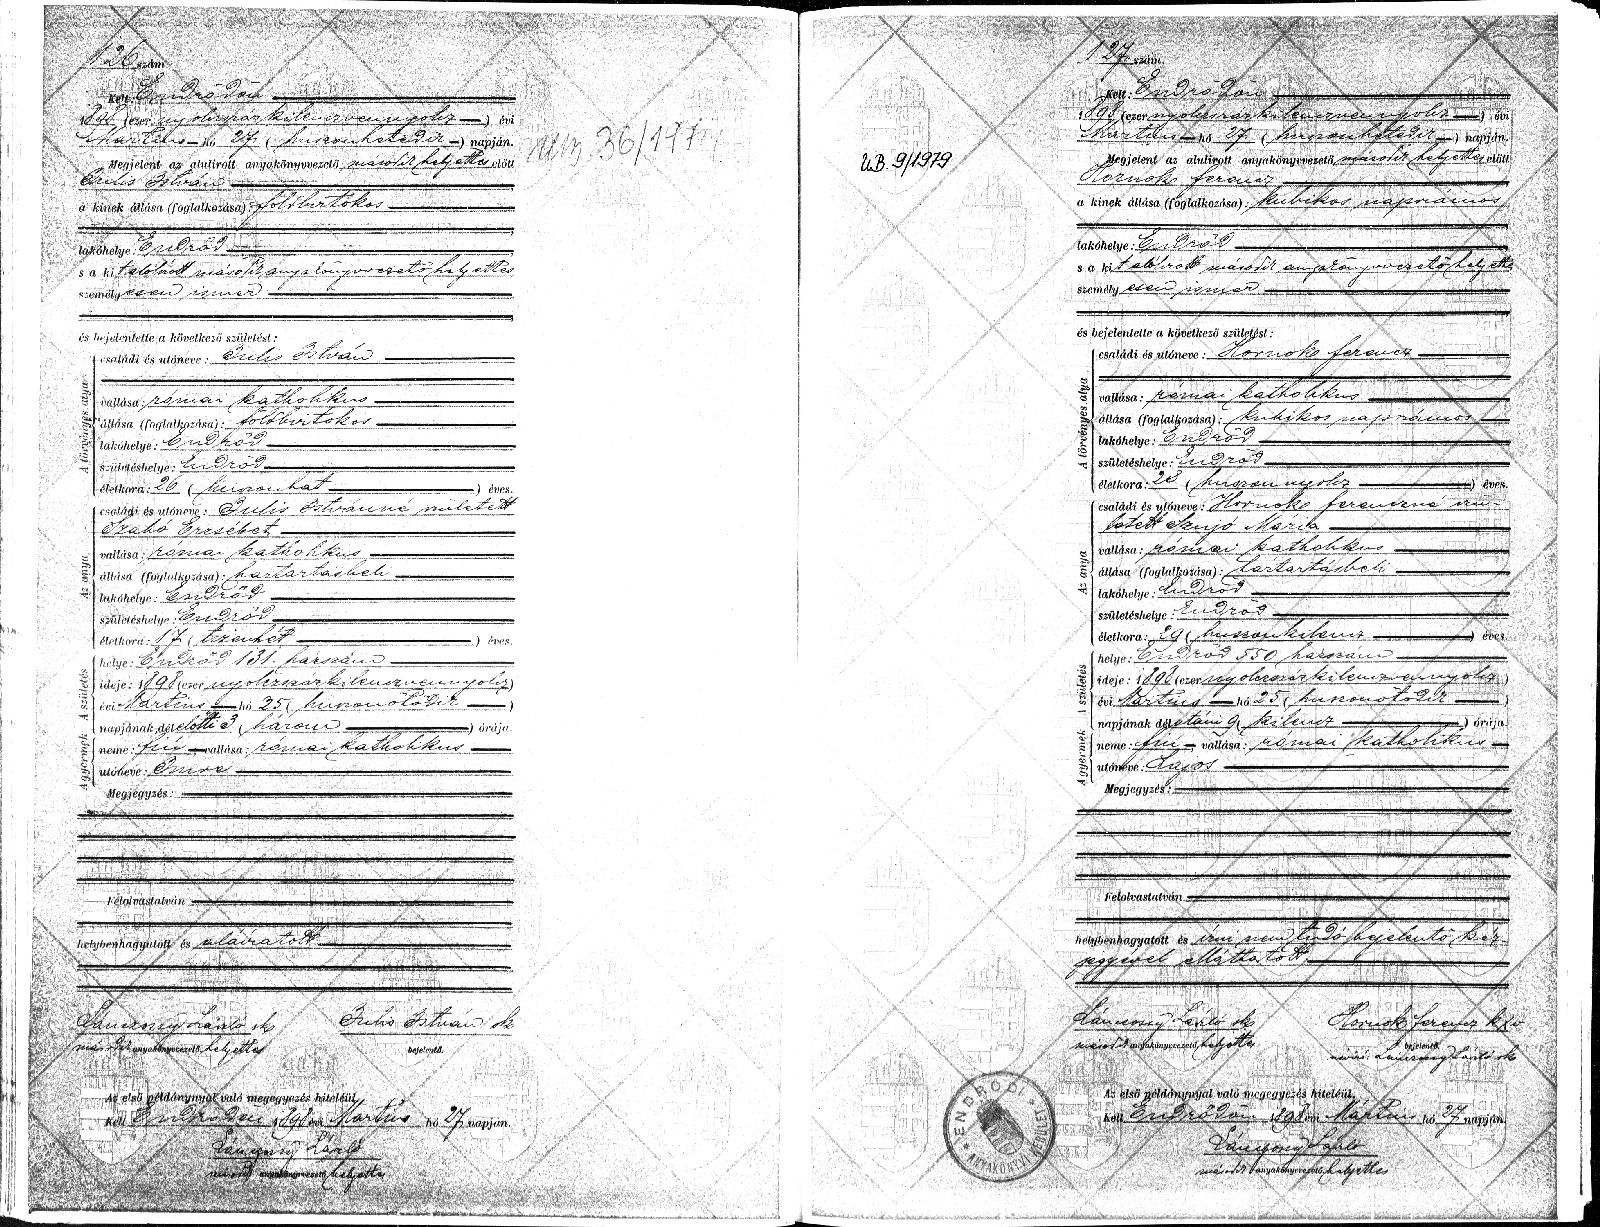 126 szám
Kelt Endrődön
1898 (ezer nyolczszázkilenczvennyolcz) évi
Martius hó 27 (huszonhetedik) napján.
Megjelent az alulirott anyakönyvvezető második helyettes előtt
Iulis István
a kinek állása (foglalkozása): földbirtokos
lakóhelye: Endrőd
s a kit alólirott második anyakönyvvezető helyettes
személyesen ismer
és bejelentette a következő születést:
A törvényes atya
családi és utóneve: Iulis István
vallása: római katholikus
állása (foglalkozása): földbirtokos
lakóhelye: Endrőd
születéshelye: Endrőd
életkora: 26 (huszonhat) éves.
Az anya
családi és utóneve: Iulis Istvánné született
Szabó Erzsébet
vallása: római katholikus
állása (foglalkozása): háztartásbeli
lakóhelye: Endrőd
születéshelye: Endrőd
életkora: 17 (tizenhét) éves.
A születés
helye: Endrőd 131. házszám
ideje: 1898 (ezer nyolczszázkilenczvennyolcz)
évi Martius hó 25 (huszonötödik)
napjának délelőtti 3 (három) órája.
A gyermek
neme: fiú vallása: római katholikus
utóneve: Imre
Megjegyzés:
Felolvastatván
helybenhagyatott és aláiratott
Lánczossy László sk
második anyakönyvvezető helyettes
Iulis István sk
bejelentő.
Az első példánynyal való megegyezés hiteléül,
Kelt Endrődön 1898 évi Martius hó 27 napján.
Lánczossy László
második anyakönyvvezető helyettes
36/197
U.B. 9/1979
127 szám.
Kelt Endrődön
1898 (ezer nyolczszázkilenczvennyolcz) évi
Martius hó 27 (huszonhetedik) napján.
Megjelent az alulirott anyakönyvvezető második helyettes előtt
Hornok ferencz
a kinek állása (foglalkozása): kubikos napszámos
lakóhelye: Endrőd
s a kit alólirott második anyakönyvvezető helyettes
személyesen ismer
és bejelentette a következő születést:
A törvényes atya
családi és utóneve: Hornok ferencz
vallása: római katholikus
állása (foglalkozása): kubikos napszámos
lakóhelye: Endrőd
születéshelye: Endrőd
életkora: 28 (huszonnyolcz) éves.
Az anya
családi és utóneve: Hornok ferenczné szü-
letett Szujó Mária
vallása: római katholikus
állása (foglalkozása): háztartásbeli
lakóhelye: Endrőd
születéshelye: Endrőd
életkora: 29 (huszonkilencz) éves.
A születés
helye: Endrőd 550 házszám
ideje: 1898 (ezer nyolczszázkilenczvennyolcz)
évi Martius hó 25 (huszonötödik)
napjának délutáni 9 (kilencz) órája.
A gyermek
neme: fiú vallása: római katholikus
utóneve: Lajos
Megjegyzés:
Felolvastatván
helybenhagyatott és irni nem tudó bejelentő kéz-
jegyével elláttatott
Lánczossy László sk
második anyakönyvvezető helyettes
Hornok ferencz
bejelentő.
Lánczossy László sk
Az első példánynyal való megegyezés hiteléül,
Kelt Endrődön 1898 évi Mártius hó 27 napján.
Lánczossy László
második anyakönyvvezető helyettes
ENDRŐDI
ANYAKÖNYVI